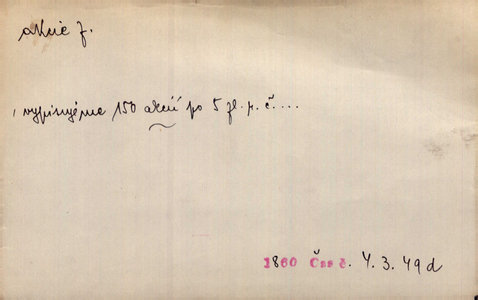 akcie f.
, vypisujeme 150 akcií po 5 fl. r. č....
1860 Čas č. 4. 3. 49 d